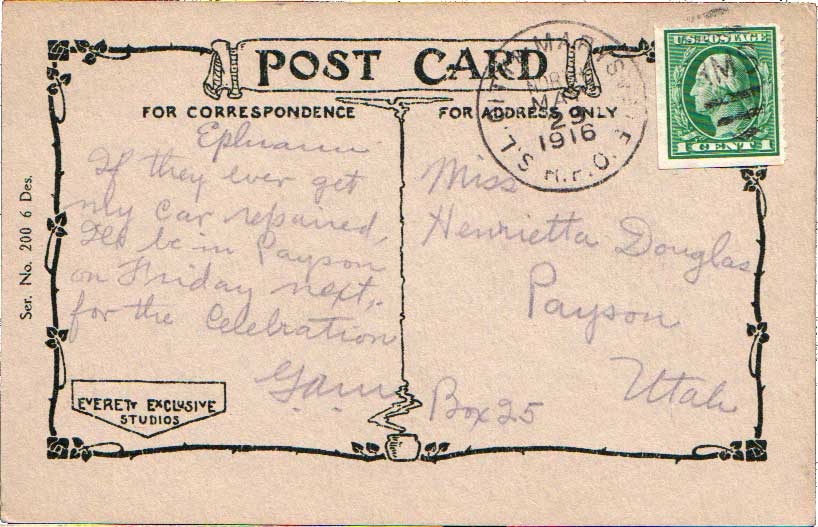 POST CARD
FOR CORRESPONDENCE
FOR ADDRESS ONLY
U.S. POSTAGE
1 CENT 1
S.L. MARYSVALE R.P.O.
MAY
29
1916
Ser. No. 200 6 Des.
Ephraim
If they ever get
my car repaired,
I'll be in Payson
on Friday next,
for the Celebration
EVERETT EXCLUSIVE
STUDIOS
Miss
Henrietta Douglas
Payson
Utah
Box 25